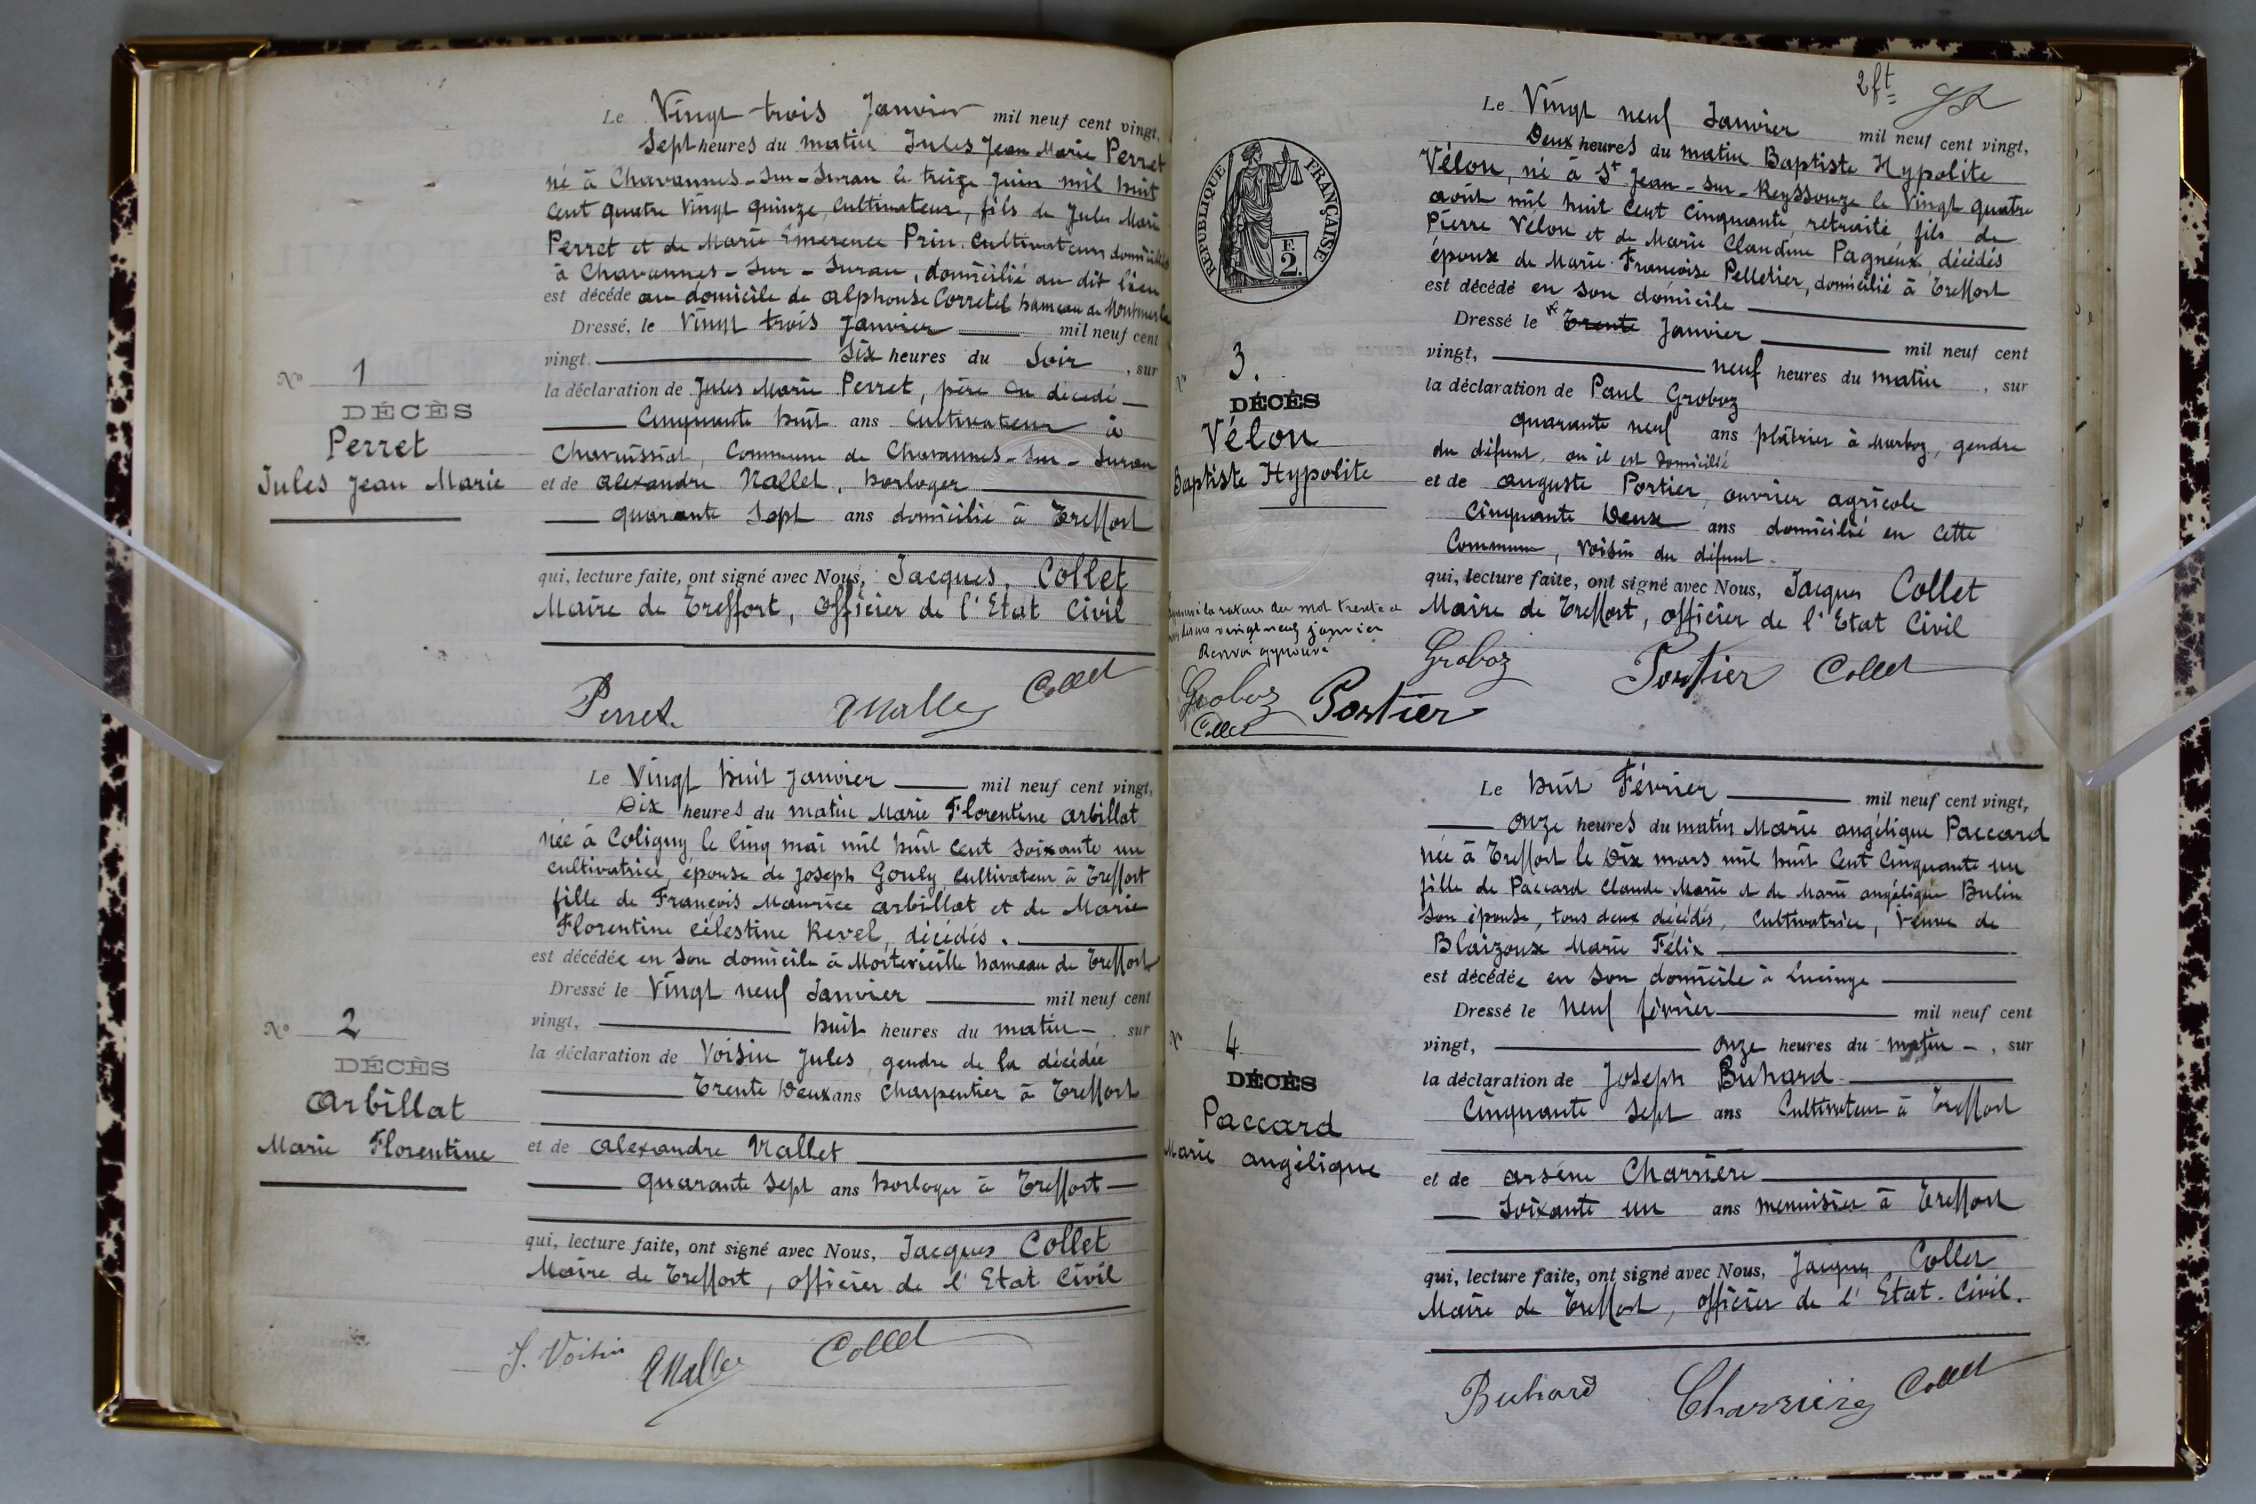 Le Vingt trois Janvier mil neuf cent vingt,
Sept heures du matin Jules Jean Marie Perret
né à Chavannes-sur-Suran le treize Juin mil huit
cent quatre vingt quinze, cultivateur, fils de Jules Marie
Perret et de Marie Emerence Prin. cultivateurs domiciliés
à Chavannes-sur-Suran, domicilié au dit lieu
est décédé au domicile de Alphonse Corretel hameau de Montmerle
Dressé, le Vingt trois Janvier mil neuf cent
vingt. Six heures du Soir, sur
la déclaration de Jules Marie Perret, père du décédé
Cinquante huit ans Cultivateur à
Commune de Chavannes-sur-Suran
et de Alexandre Nallet, horloger
quarante Sept ans domicilié à Treffort
qui, lecture faite, ont signé avec Nous, Jacques, Collet
Maire de Treffort, Officier de l'Etat Civil
N° 1
DÉCÈS
Perret
Jules Jean Marie
Perret ANallet Collet
Le Vingt huit Janvier mil neuf cent vingt,
Dix heures du matin Marie Florentine Arbillat
née à Coligny le Cinq mai mil huit cent soixante un
cultivatrice, épouse de Joseph Gouly, cultivateur à Treffort
fille de François Maurice Arbillat et de Marie
Florentine Célestine Revel, décédés.
est décédée en son domicile à Montevieille hameau de Treffort
Dressé le Vingt neuf Janvier mil neuf cent
vingt, huit heures du matin, sur
la déclaration de Voisin Jules, gendre de la décédée
Trente Deux ans Charpentier à Treffort
et de Alexandre Nallet
quarante sept ans horloger à Treffort
qui, lecture faite, ont signé avec Nous, Jacques Collet
Maire de Treffort, officier de l'Etat Civil
N° 2
DÉCÈS
Arbillat
Marie Florentine
J. Voisin ANallet Collet
2ft
Le Vingt neuf Janvier mil neuf cent vingt,
Deux heures du matin Baptiste Hypolite
Vélon, né à St Jean-sur-Reyssouze le Vingt quatre
août mil huit cent cinquante, retraité, fils de
Pierre Vélon et de Marie Claudine Pagneux, décédés
époux de Marie Françoise Pelletier, domicilié à Treffort
est décédé en son domicile
Dressé le Trente Janvier mil neuf cent
vingt, neuf heures du matin, sur
la déclaration de Paul Groboz
quarante neuf ans plâtrier à Marboz, gendre
du défunt, où il est domicilié
et de Auguste Portier, ouvrier agricole
Cinquante Deux ans domicilié en cette
Commune, voisin du défunt.
qui, lecture faite, ont signé avec Nous, Jacques Collet
Maire de Treffort, officier de l'Etat Civil
REPUBLIQUE FRANÇAISE
F.
2.
N° 3.
DÉCÈS
Vélon
Baptiste Hypolite
la rature du mot trente
vingt neuf janvier
Renvoi approuvé
Groboz Portier Collet
Groboz Portier
Collet
Le huit Février mil neuf cent vingt,
onze heures du matin Marie Angélique Paccard
née à Treffort le Dix mars mil huit Cent Cinquante un
fille de Paccard Claude Marie et de Marie Angélique Bulin
son épouse, tous deux décédés, cultivatrice, Veuve de
Blaizoux Marie Félix
est décédée en son domicile à Lucinge
Dressé le Neuf février mil neuf cent
vingt, onze heures du matin, sur
la déclaration de Joseph Buhard
Cinquante Sept ans Cultivateur à Treffort
et de Arsène Charrière
Soixante un ans menuisier à Treffort
qui, lecture faite, ont signé avec Nous, Jacques Collet
Maire de Treffort, officier de l'Etat Civil.
N° 4
DÉCÈS
Paccard
Marie Angélique
Buhard Charrière Collet